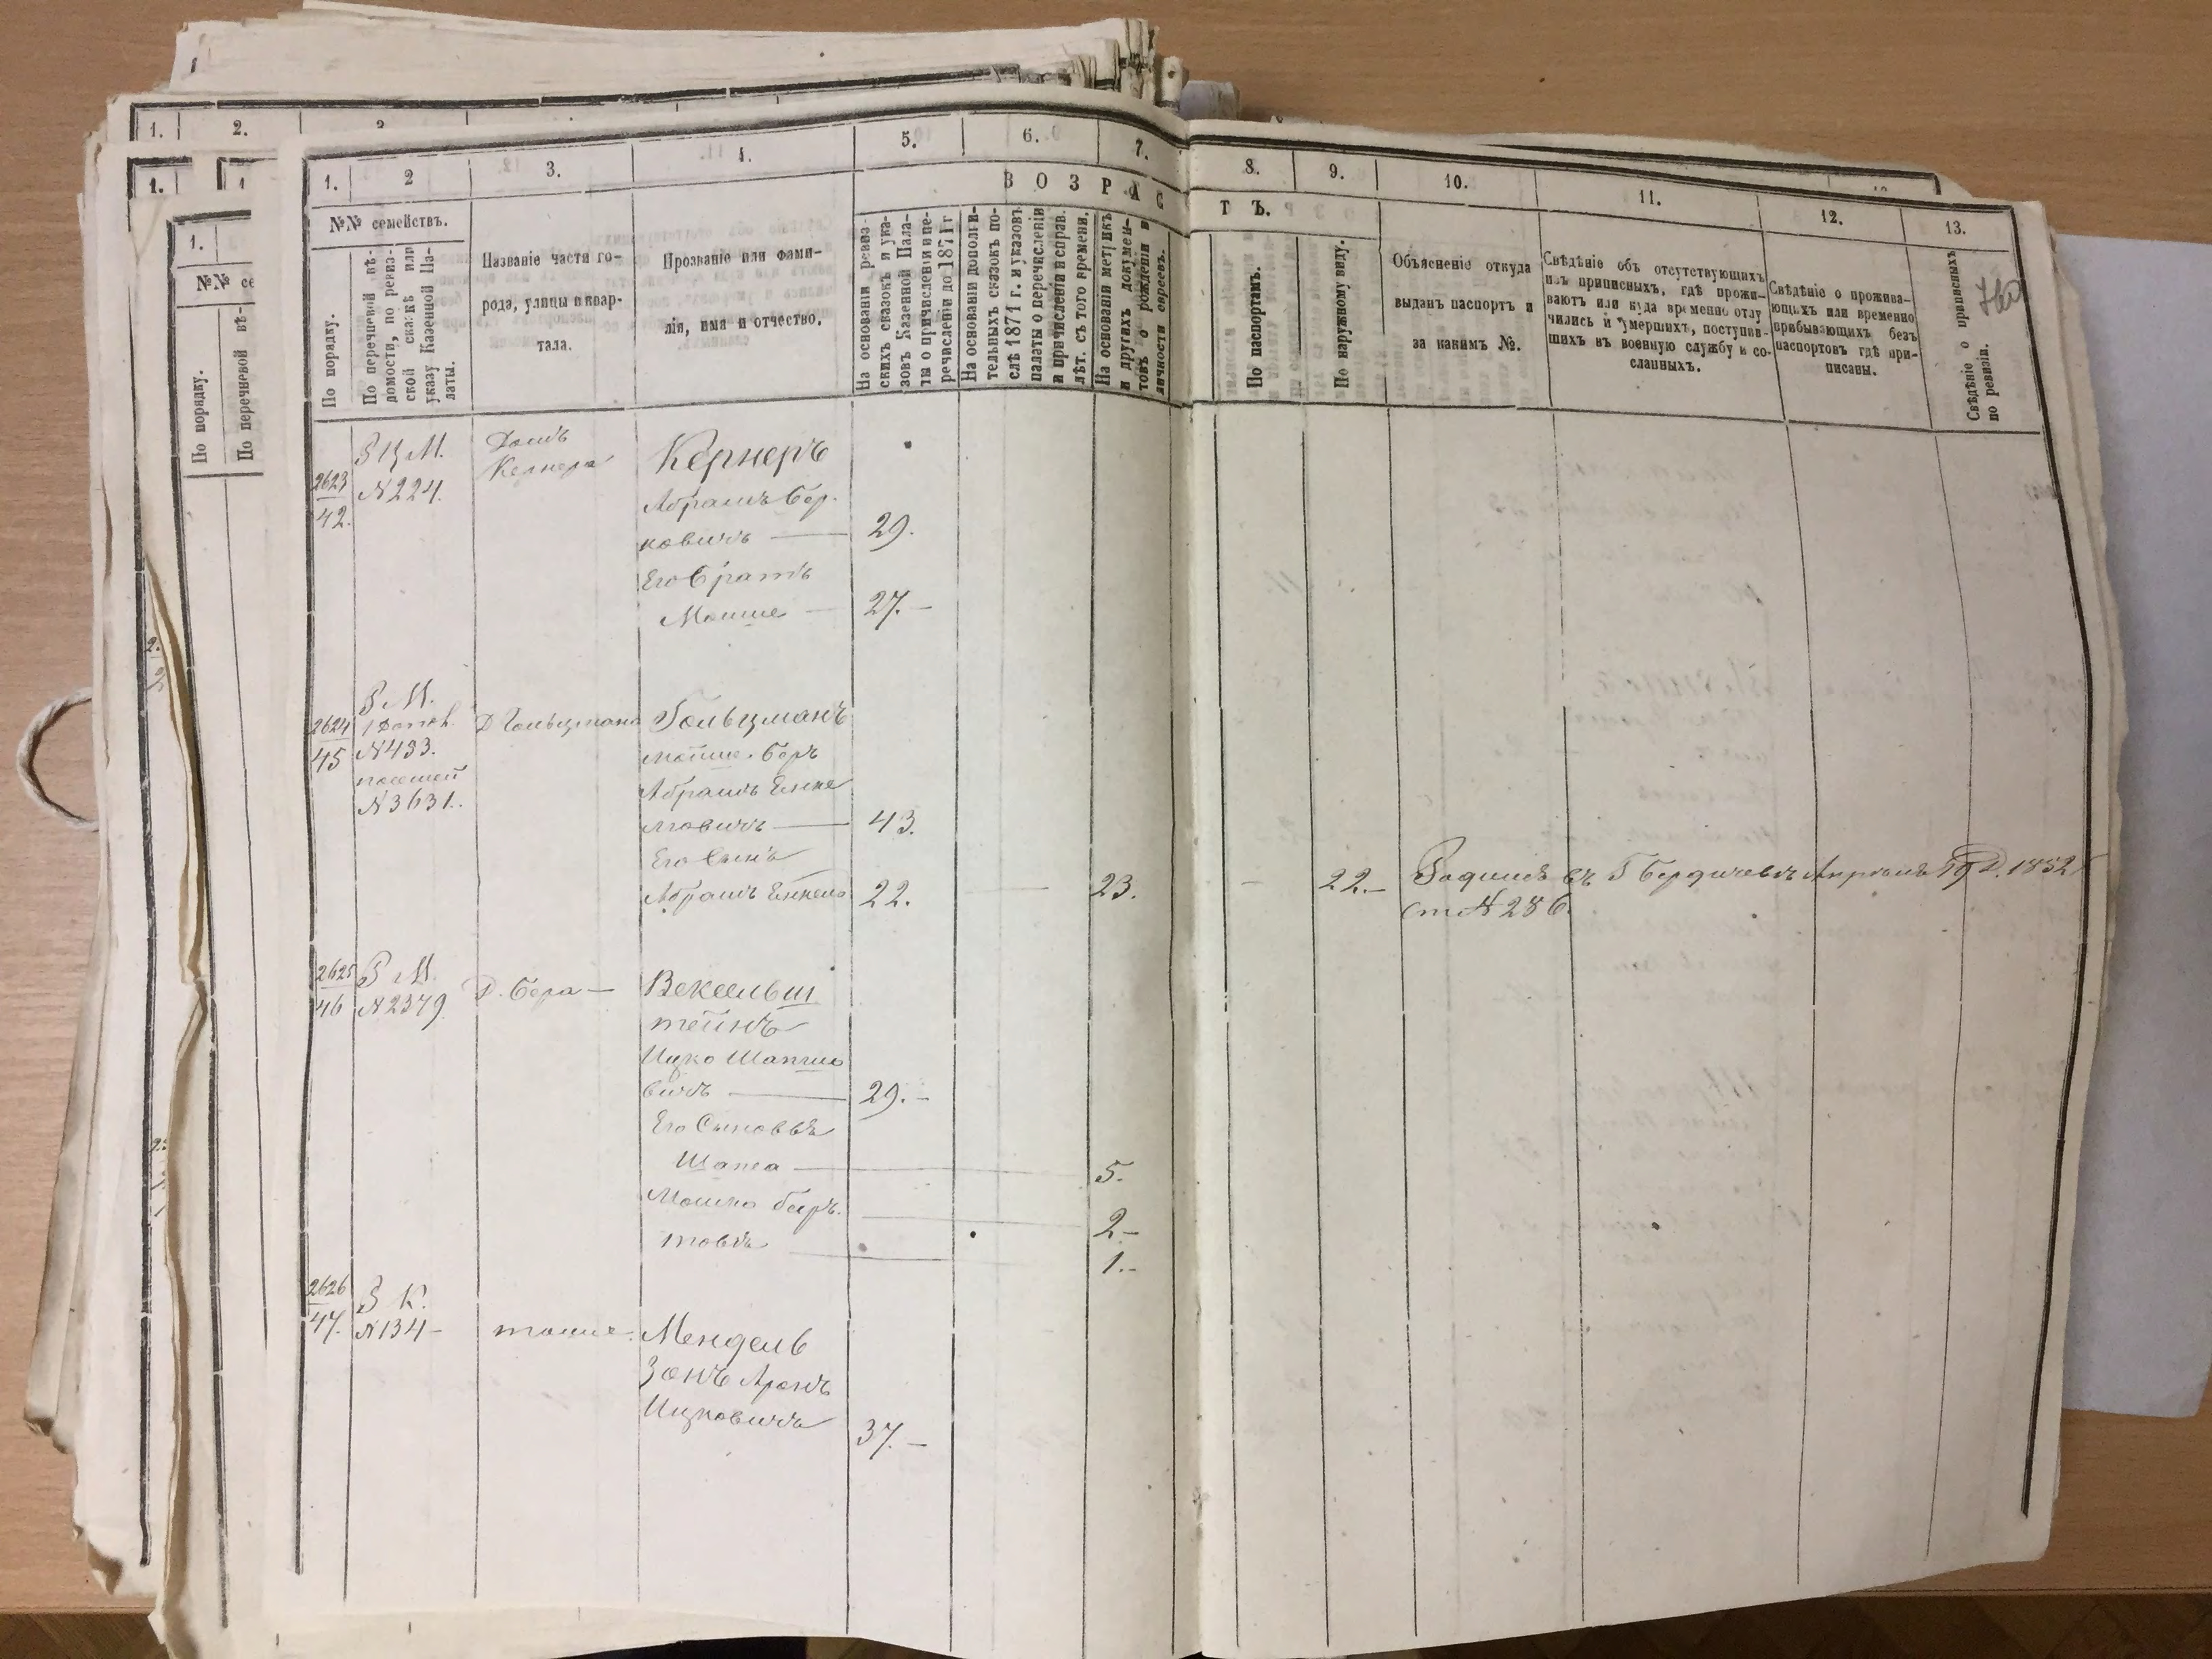 1. 2.
1. 2 3. 4. 5. 6. 7. 8. 9. 10. 11. 12. 13.
В О З Р А С Т Ъ.
№№ семействъ.
По порядку.
По перечневой вѣ-
домости, по ревиз-
ской сказкѣ или
указу Казенной Па-
латы.
Названіе части го-
рода, улицы и квар-
тала.
Прозваніе или фами-
лія, имя и отчество.
На основаніи ревиз-
скихъ сказокъ и ука-
зовъ Казенной Пала-
ты о причисленіи и пе-
речисленіи до 1871 г
На основаніи дополни-
тельныхъ сказокъ по-
слѣ 1871 г. и указовъ
палаты о перечисленіи
и причисленіи и справ.
лѣт. съ того времени.
На основаніи метрикъ
и другихъ докумен-
товъ о рожденіи и
личности евреевъ.
По паспортамъ.
По наружному виду.
Объясненіе откуда
выданъ паспортъ и
за какимъ №.
Свѣдѣніе объ отсутствующихъ
изъ приписныхъ, гдѣ прожи-
ваютъ или куда временно отлу
чились и умершихъ, поступив-
шихъ въ военную службу и со-
сланныхъ.
Свѣдѣніе о прожива-
ющихъ или временно
прибывающихъ безъ
паспортовъ гдѣ при-
писаны.
Свѣдѣніе о приписныхъ
по ревизіи.
1.
№№ се
По порядку.
По перечневой вѣ-
2623
42.
№224.
Домъ
Кернера
Кернеръ
Абрамъ Бер-
ковичъ — 29.
Его братъ
Мошие — 27.-
2624
45
№433.
№3631.
Д Гольцмана
Гольцманъ
Мошие-Беръ
Абрамъ Енке
левичъ — 43.
Его Сынъ
Абрамъ Енкель 22. — 23. — 22.-
Родился въ Г Бердичевѣ Апрѣля 19 д. 1852
ст № 286.
2625
46
Р М.
№2379
Д. Бера —
Вексельш
тейнъ
Ицко Шапсио
вичъ — 29.-
Его Сыновья
Шапса — 5.
Мошко беръ. — 2-
— 1.-
2626
47.
Р К.
№134-
тоже.
Мендель
Зонъ Аронъ
Ицковичъ 37.-